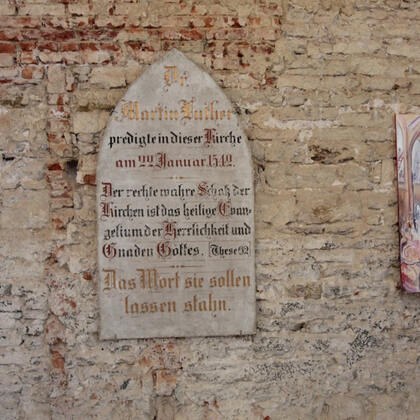 Dr.
Martin Luther
predigte in dieser Kirche
am 22. Januar 1542.
Der rechte wahre Schatz der
Kirchen ist das heilige Evan-
gelium der Herrlichkeit und
Gnaden Gottes. These 62
Das Wort sie sollen
lassen stahn.